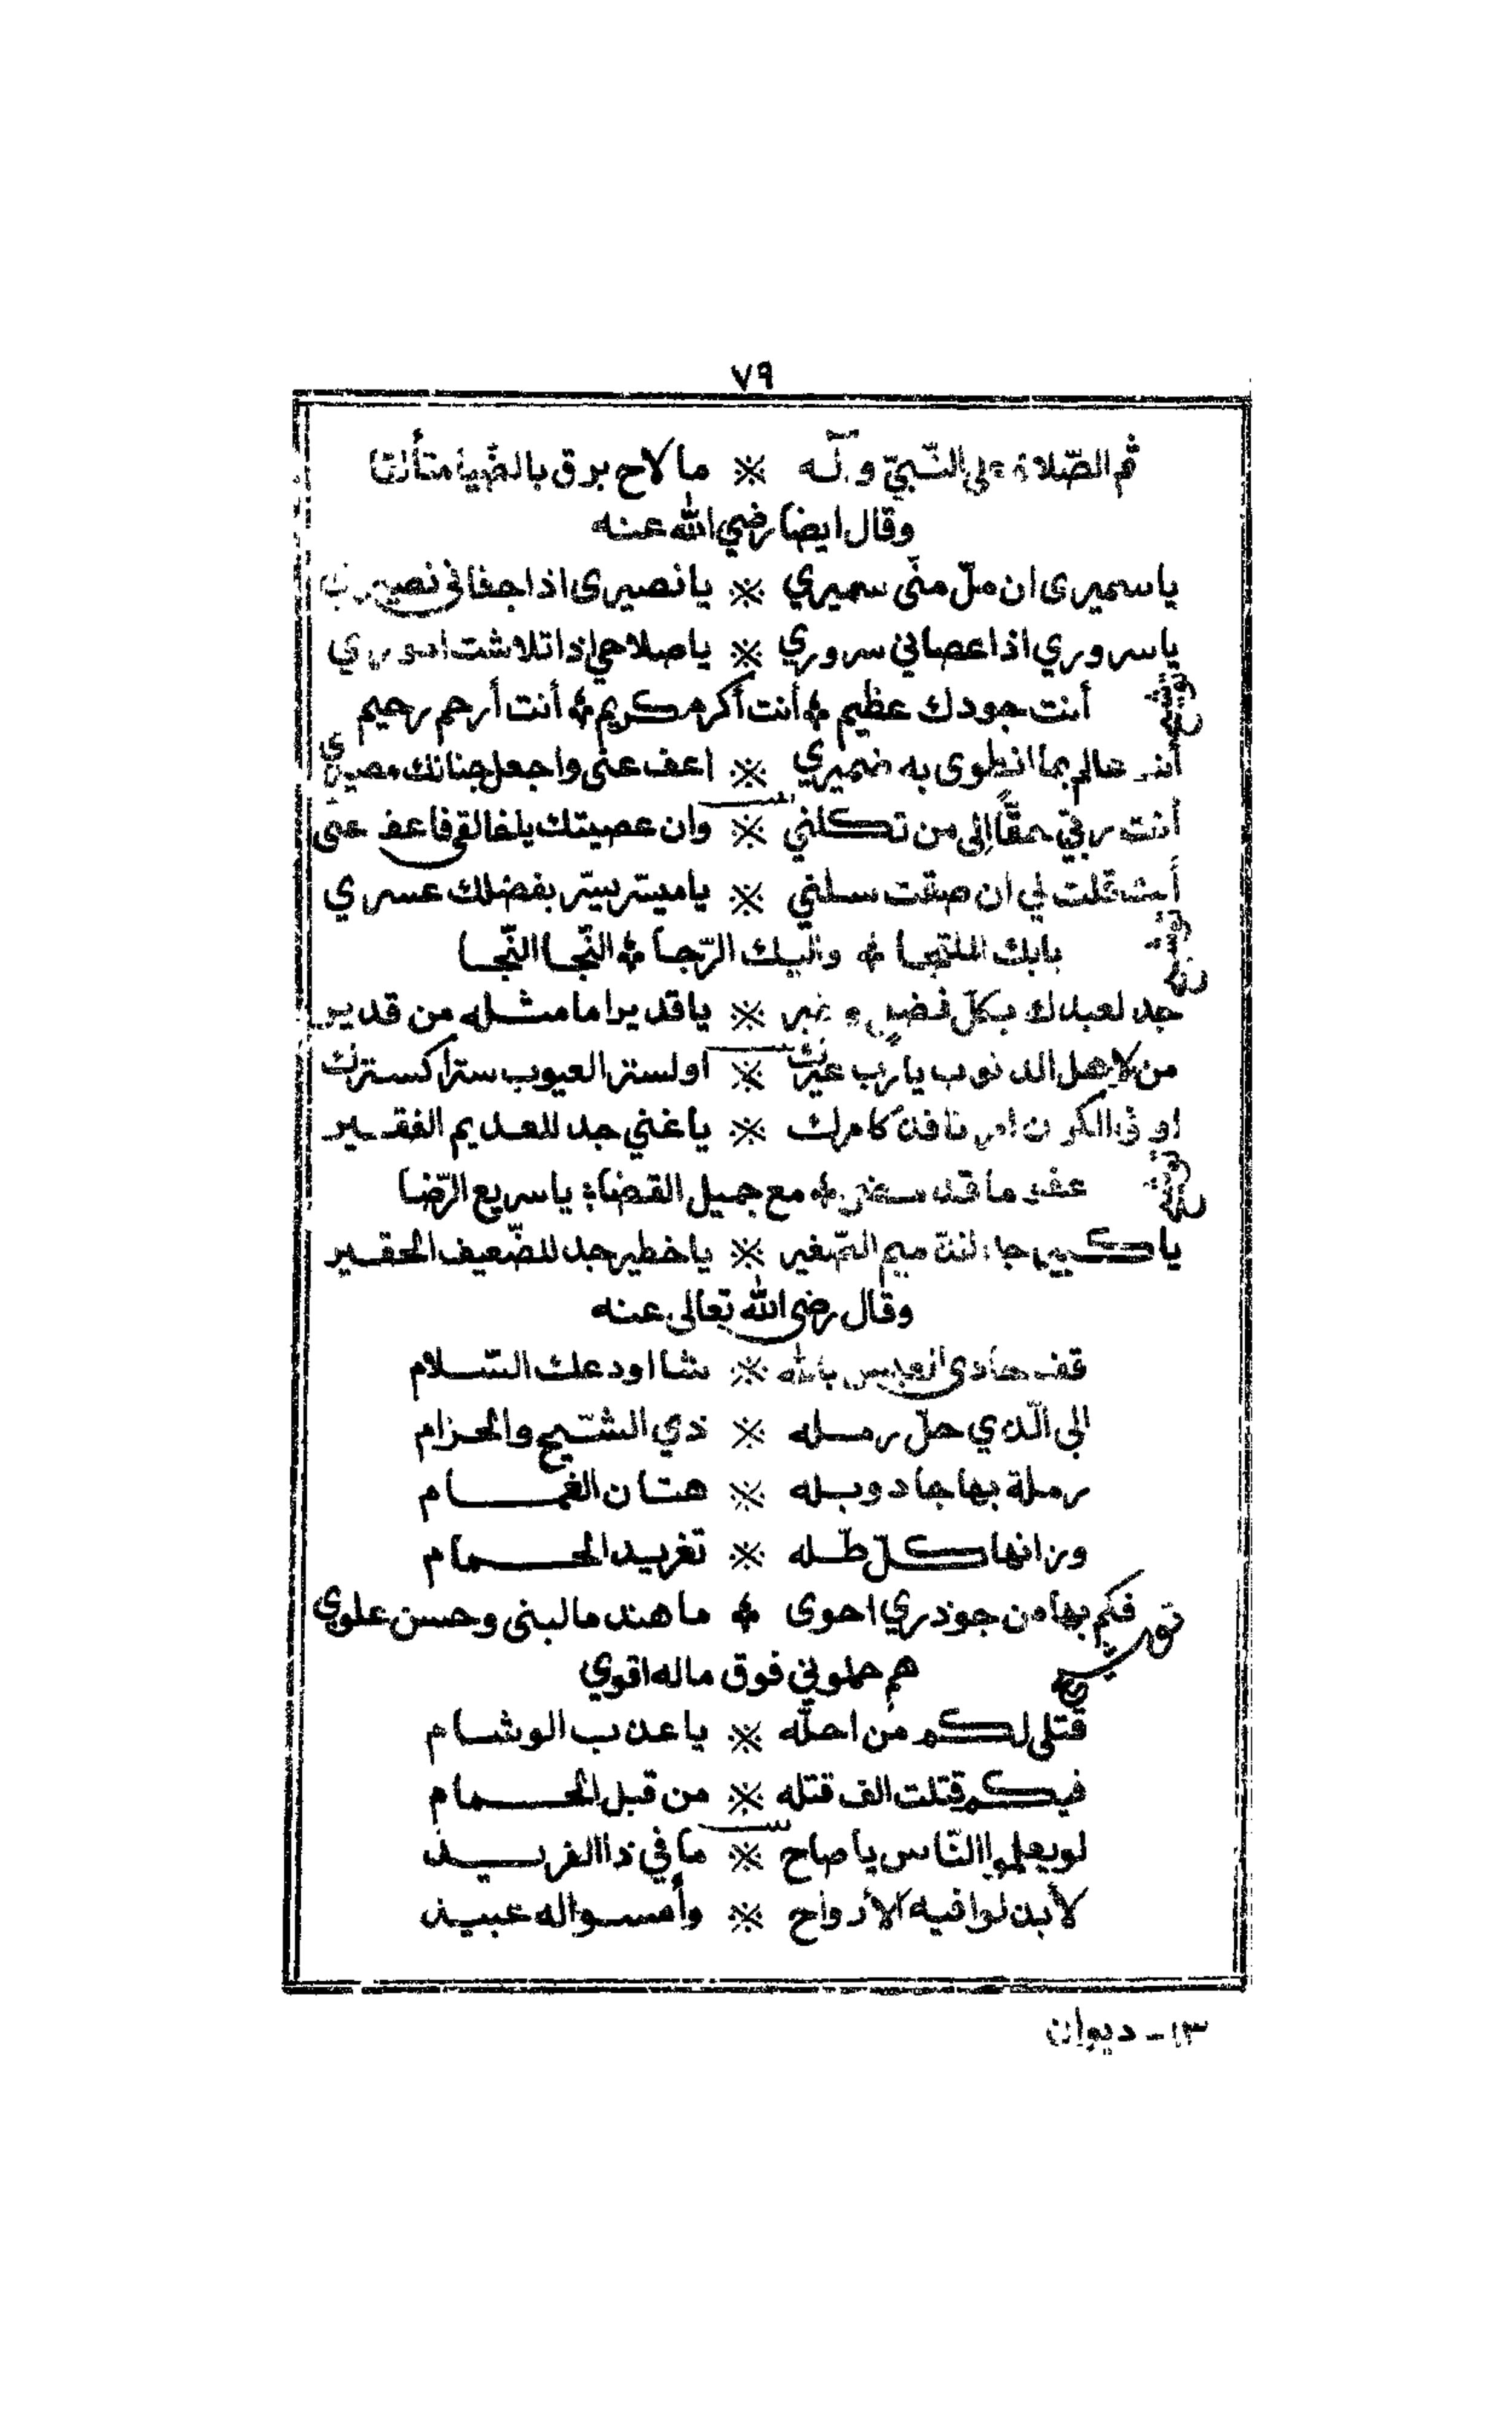 ٧٩
ثم الصّلاة على النّبيّ وآله ※ ما لاح برق بالضّيا متألقا
وقال ايضا رضي الله عنه
ياسميرى ان ملّ منّى سميري ※ يانصيرى اذا جفانى نصيرى
ياسروري اذا عصاني سروري ※ ياصلاحي اذا تلاشت اموري
توشيح أنت جودك عظيم ✤ أنت أكرم كريم ✤ أنت أرحم رحيم
أنت عالم بما انطوى به ضميري ※ اعف عنى واجعل جنانك مصيري
أنت ربّي حقّاً إلى من تكلني ※ وان عصيتك ياخالقى فاعف عنى
أنت قلت لي ان ضقت سلني ※ ياميسّر يسّر بفضلك عسري
توشيح بابك الملتجا ✤ واليك الرّجا ✤ النّجا النّجا
جد لعبدك بكلّ فضل و خير ※ ياقديرا ما مثله من قدير
من لاهل الذنوب يارب غيرك ※ او لستر العيوب سترا كسترك
او فى الكون امر نافذ كامرك ※ ياغني جد للعديم الفقير
توشيح عفو ما قد مضى ✤ مع جميل القضا ✤ ياسريع الرّضا
ياكبير جاء لك الصّغير ※ ياخطير جد للضّعيف الحقير
وقال رضى الله تعالى عنه
قف حادى العيس بالله ※ شا اودعك السّلام
الى الّذي حلّ رمله ※ ذي الشّيح والخزام
رملة بها جاد وبله ※ هتان الغمام
وزانها كلّ طله ※ تغريد الحمام
توشيح فكم بها من جوذري احوى ✤ ما هند ما لبنى وحسن علوي
هم حملوني فوق ماله اقوي
قتلى لكم من احلّه ※ ياعذب الوشام
فيكم قتلت الف قتله ※ من قبل الحمام
لو يعلموا النّاس ياصاح ※ ما في ذا الفريد
لأبذلوا فيه الأرواح ※ وأمسوا له عبيد
١٣ - ديوان